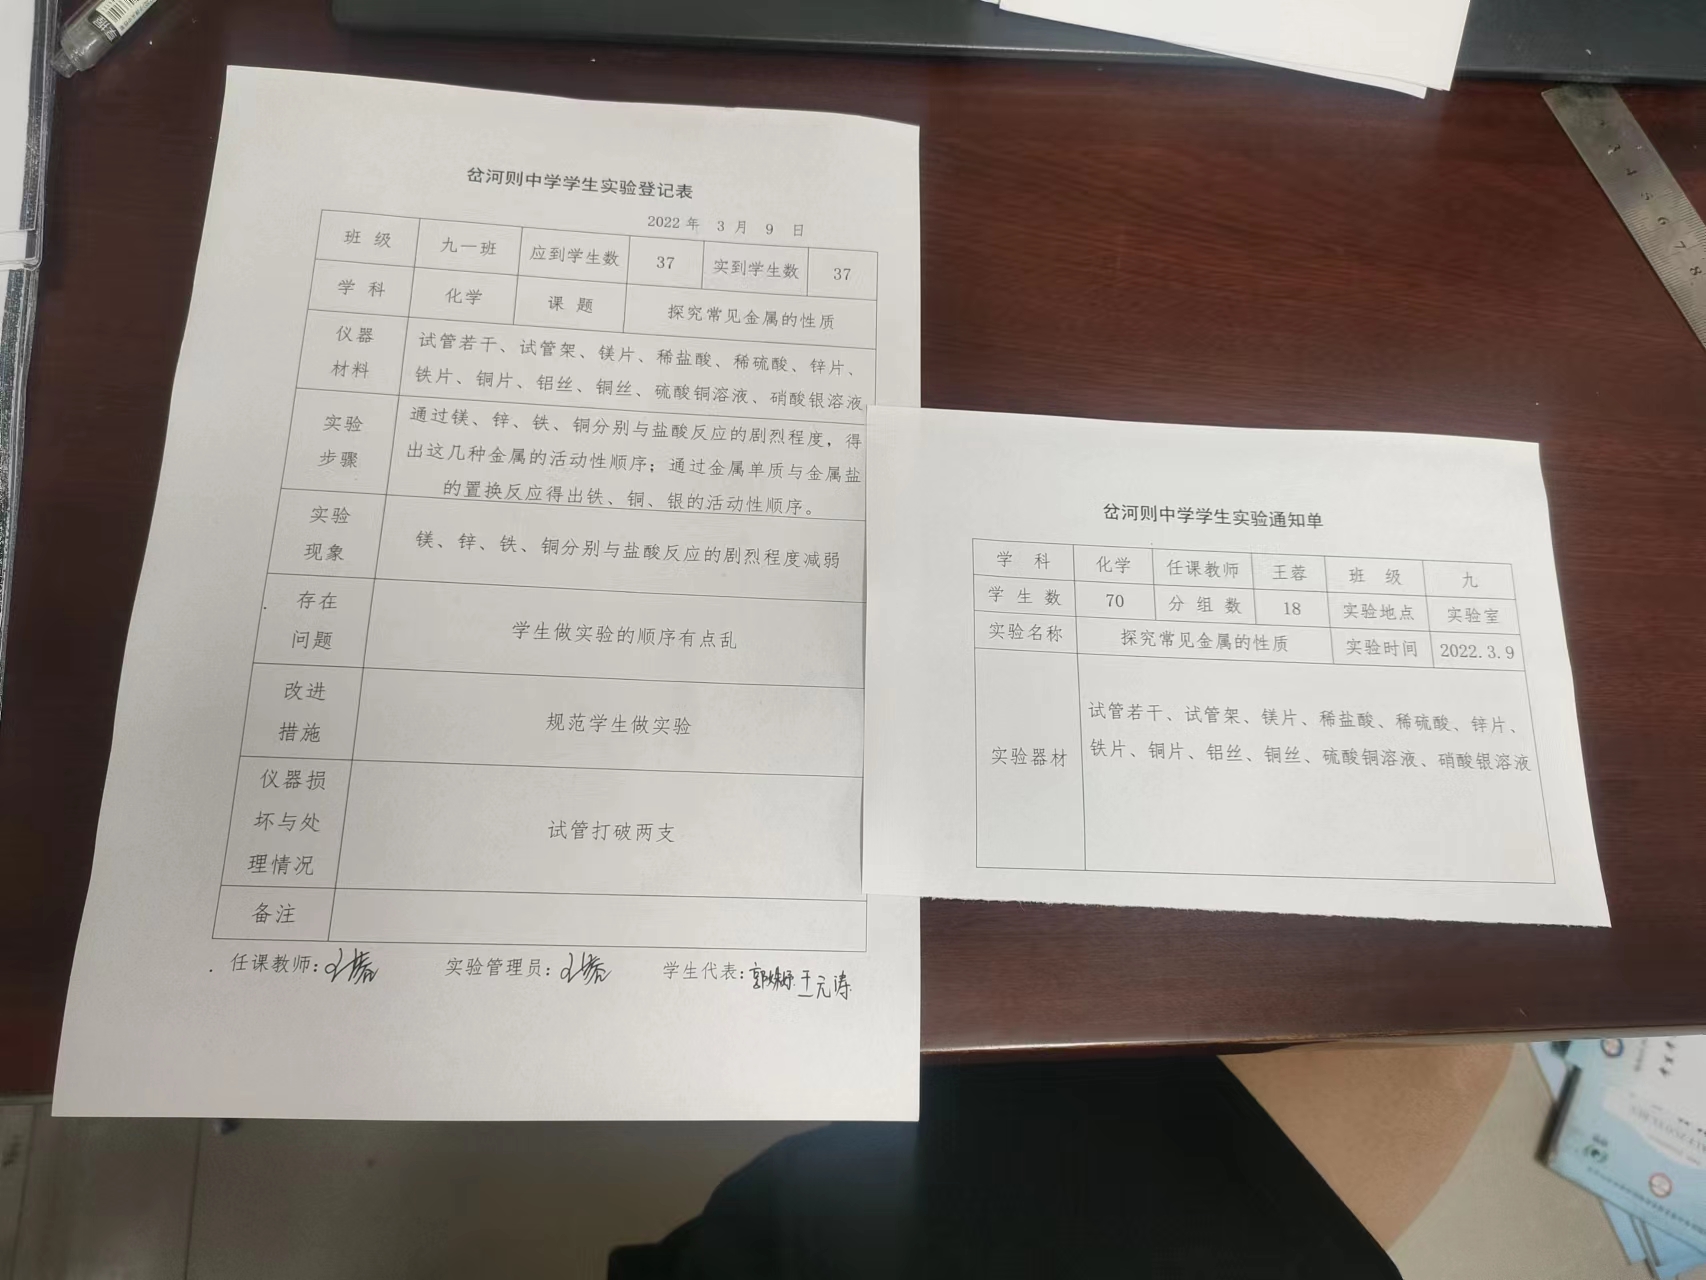 岔河则中学学生实验登记表
2022 年 3 月 9 日
班 级 九一班 应到学生数 37 实到学生数 37
学 科 化学 课 题 探究常见金属的性质
仪器
材料
试管若干、试管架、镁片、稀盐酸、稀硫酸、锌片、
铁片、铜片、铝丝、铜丝、硫酸铜溶液、硝酸银溶液
实验
步骤
通过镁、锌、铁、铜分别与盐酸反应的剧烈程度，得
出这几种金属的活动性顺序；通过金属单质与金属盐
的置换反应得出铁、铜、银的活动性顺序。
实验
现象
镁、锌、铁、铜分别与盐酸反应的剧烈程度减弱
存在
问题
学生做实验的顺序有点乱
改进
措施
规范学生做实验
仪器损
坏与处
理情况
试管打破两支
备注
任课教师： 实验管理员： 学生代表： 王元涛
岔河则中学学生实验通知单
学 科 化学 任课教师 王蓉 班 级 九
学 生 数 70 分 组 数 18 实验地点 实验室
实验名称 探究常见金属的性质 实验时间 2022.3.9
实验器材
试管若干、试管架、镁片、稀盐酸、稀硫酸、锌片、
铁片、铜片、铝丝、铜丝、硫酸铜溶液、硝酸银溶液
3 4 5 6 7 8